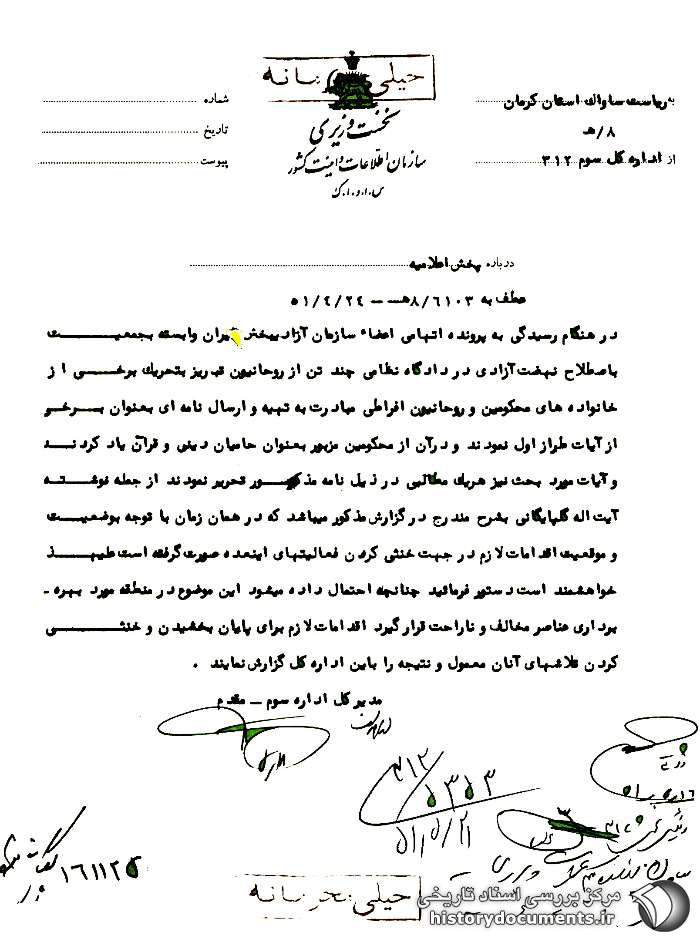 خیلی محرمانه
به ریاست ساواک استان کرمان
۸/هـ
از اداره کل سوم ۳۱۲
نخست وزیری
سازمان اطلاعات و امنیت کشور
س.ا.و.ا.ک
شماره
تاریخ
پیوست
درباره پخش اعلامیه
عطف به ۸/۶۱۰۳هـ - ۵۱/۴/۲۴
در هنگام رسیدگی به پرونده اتهامی اعضاء سازمان آزادیبخش ایران وابسته بجمعیت
باصطلاح نهضت آزادی در دادگاه نظامی چند تن از روحانیون تبریز بتحریک برخی از
خانواده های محکومین و روحانیون افراطی مبادرت به تهیه و ارسال نامه ای بعنوان برخی
از آیات طراز اول نمودند و در آن از محکومین مزبور بعنوان حامیان دینی و قرآن یاد کردند
و آیات مورد بحث نیز هریک مطالبی در ذیل نامه مذکور تحریر نمودند از جمله نوشته
آیت اله گلپایگانی بشرح مندرج در گزارش مذکور میباشد که در همان زمان با توجه بوضعیت
و موقعیت اقدامات لازم در جهت خنثی کردن فعالیتهای اینعده صورت گرفته است علیهذ
خواهشمند است دستور فرمائید چنانچه احتمال داده میشود این موضوع در منطقه مورد بهره -
برداری عناصر مخالف و ناراحت قرار گیرد اقدامات لازم برای پایان بخشیدن و خنثی
کردن تلاشهای آنان معمول و نتیجه را باین اداره کل گزارش نمایند .
مدیر کل اداره سوم - مقدم
۳۱۲/
۵۳۵۳
۵۱/۵/۲۱
۱۶۱۱۲۵
خیلی محرمانه
مرکز بررسی اسناد تاریخی
historydocuments.ir